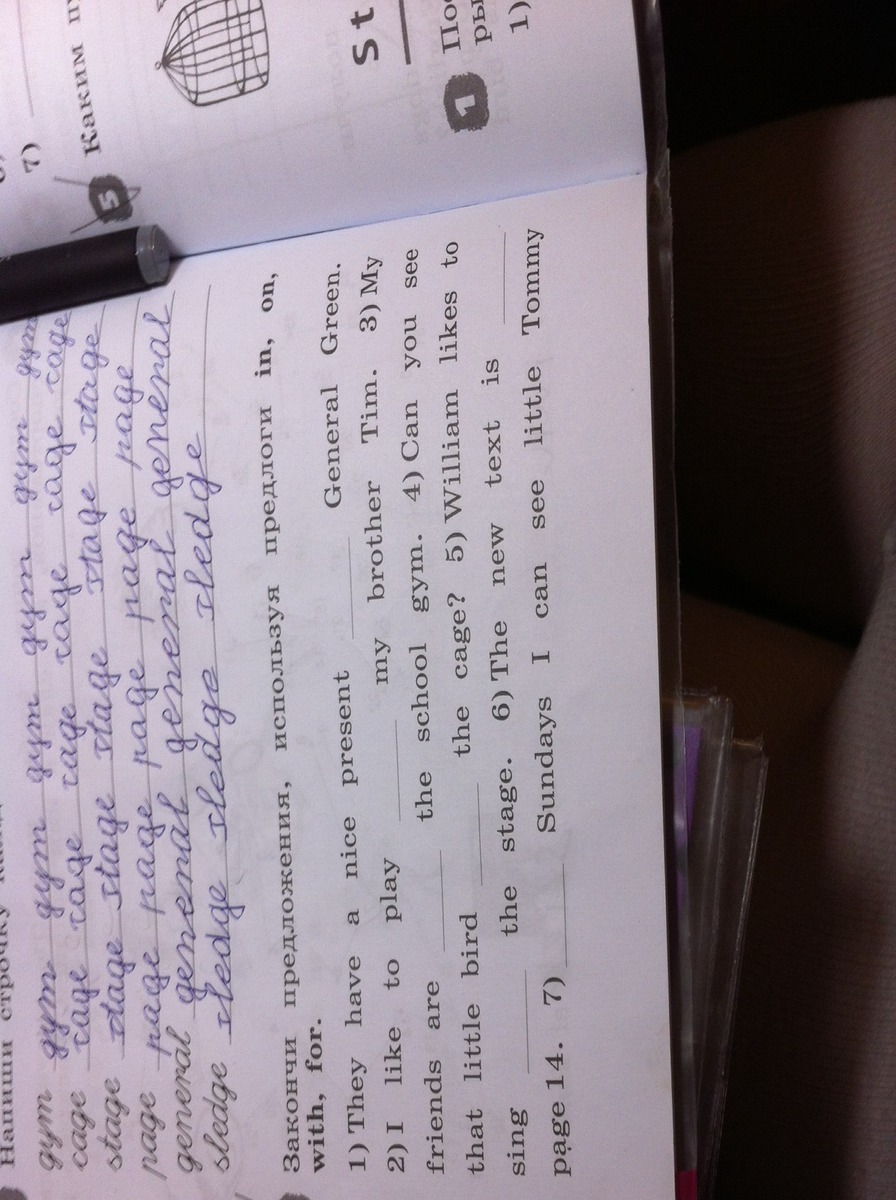 Напиши строчку
gym gym gym gym gym gym gym
cage cage cage cage cage cage cage
stage stage stage stage stage stage
page page page page page page page
general general general general
sledge sledge sledge sledge sledge
Закончи предложения, используя предлоги in, on,
with, for.
1) They have a nice present ____ General Green.
2) I like to play ____ my brother Tim. 3) My
friends are ____ the school gym. 4) Can you see
that little bird ____ the cage? 5) William likes to
sing ____ the stage. 6) The new text is ____
page 14. 7) ____ Sundays I can see little Tommy
7)
5 Каким
St
1 По
ры
1)